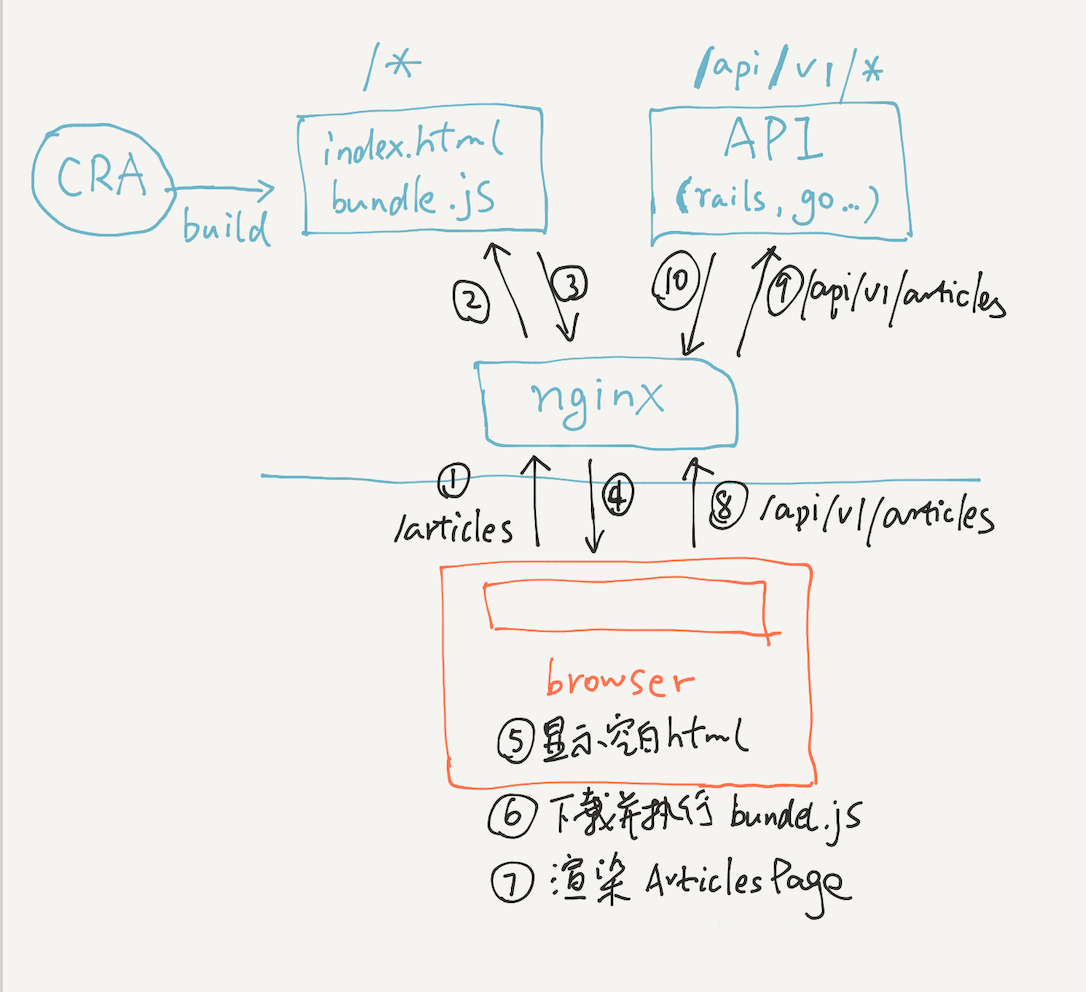 /*
/api/v1/*
CRA
build
index.html
bundle.js
API
(rails, go...)
②
③
⑩
⑨/api/v1/articles
nginx
①
/articles
④
⑧ /api/v1/articles
browser
⑤显示空白html
⑥ 下载并执行 bundel.js
⑦ 渲染 ArticlesPage